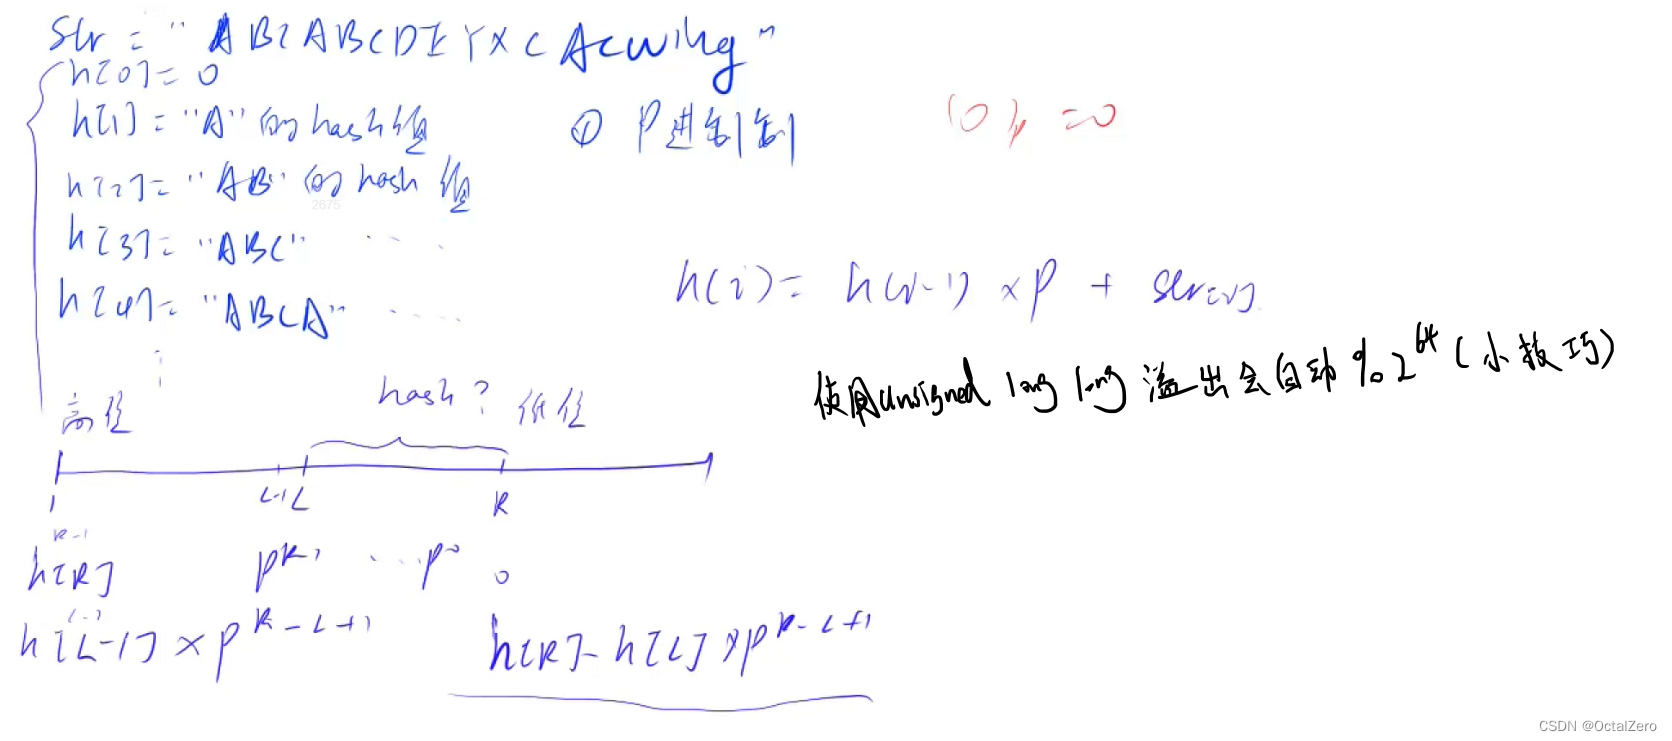 str = "ABCABCDEYXCAcwing"
h[0] = 0
h[1] = "A" 的 hash值
① P进制制
(0)p = 0
h[2] = "AB" 的 hash 值
2675
h[3] = "ABC" ......
h(i) = h(i-1) × P + str[i]
h[4] = "ABCA" ......
使用unsigned long long 溢出会自动 % 2^64 (小技巧)
hash?
高位 低位
1 L-1 L R
R-1
h[R] p^R-1 ... p^0 0
L-2
h[L-1] × p^R-L+1 h[R] - h[L] × p^R-L+1
CSDN @OctalZero